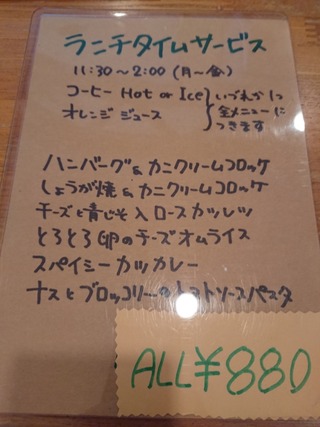 ランチタイムサービス
11:30〜2:00 (月〜金)
コーヒー Hot or Ice
オレンジ ジュース
いづれか1つ
全メニューに
つきます
ハンバーグ&カニクリームコロッケ
しょうが焼&カニクリームコロッケ
チーズと青じそ入ロースカツレツ
とろとろ卵のチーズオムライス
スパイシーカツカレー
ナスとブロッコリーのトマトソースパスタ
ALL¥880